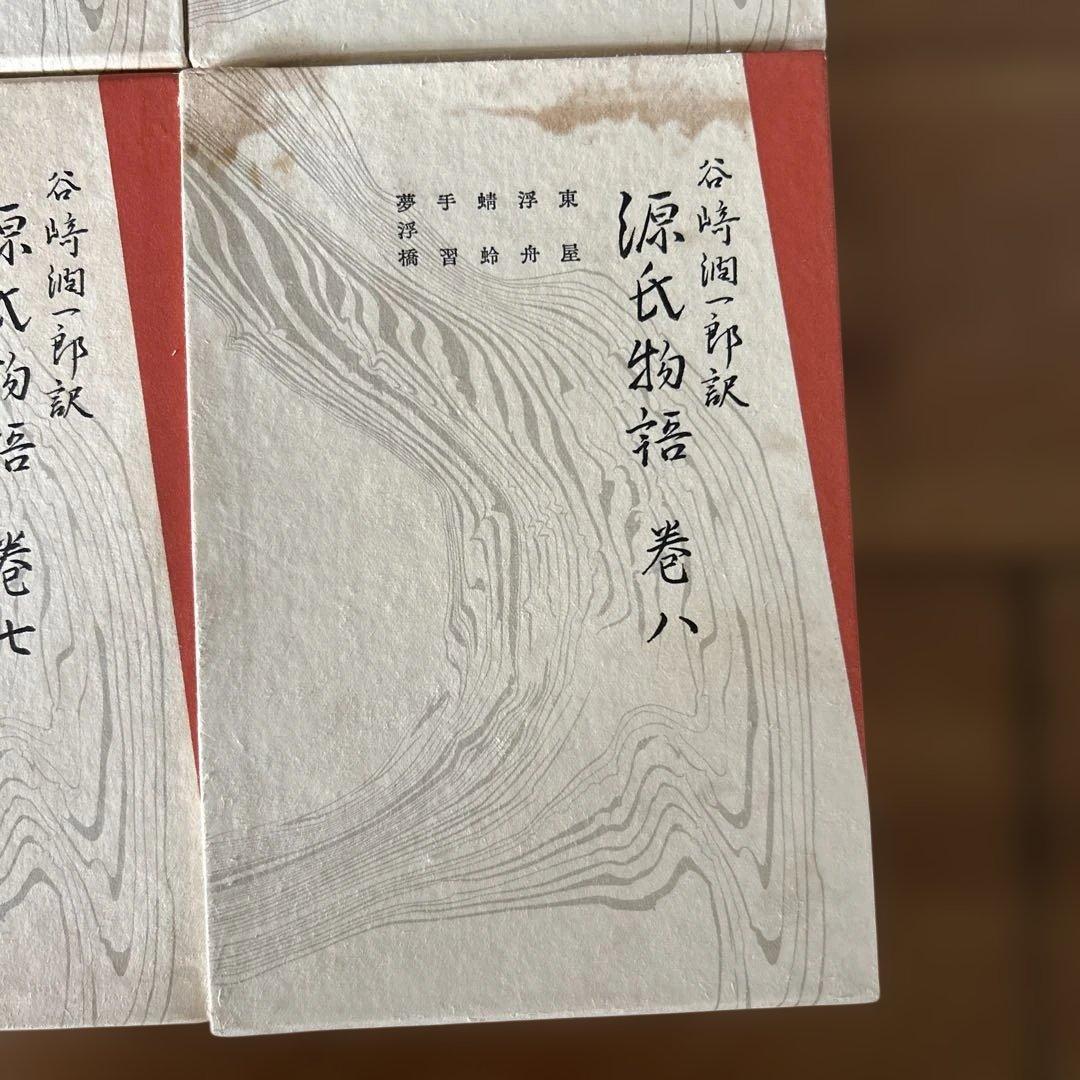 谷崎潤一郎訳
源氏物語 巻八
東屋
浮舟
蜻蛉
手習
夢浮橋
谷崎潤一郎訳
源氏物語 巻七